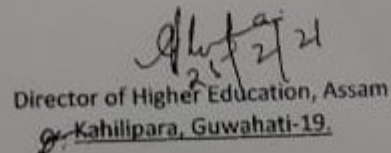 Director of Higher Education, Assam
Kahilipara, Guwahati-19.